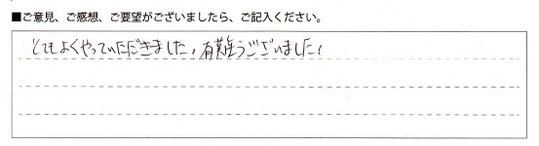 ■ご意見、ご感想、ご要望がございましたら、ご記入ください。
とてもよくやっていただきました。有難うございました。